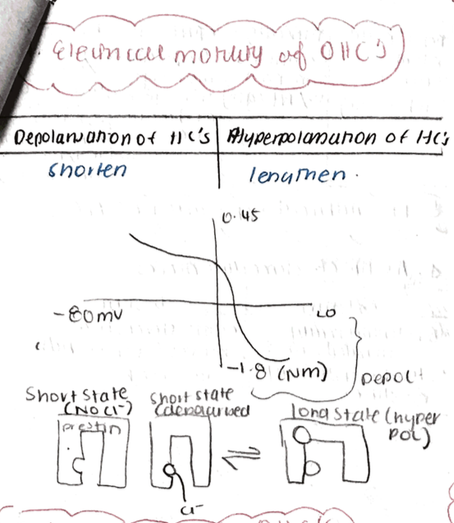 Electrical motility of OHC's
Depolarization of HC's
Hyperpolarization of HC's
shorten
lengthen.
0.45
-80mV
40
-1.8 (Nm)
DEPOL
Short state
(NO Cl-)
prestin
Short state
long state (hyper
pol)
Cl-